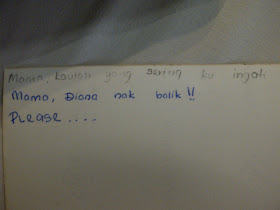 Mama, kaulah yang sering ku ingati
Mama, Diana nak balik!!
Please....